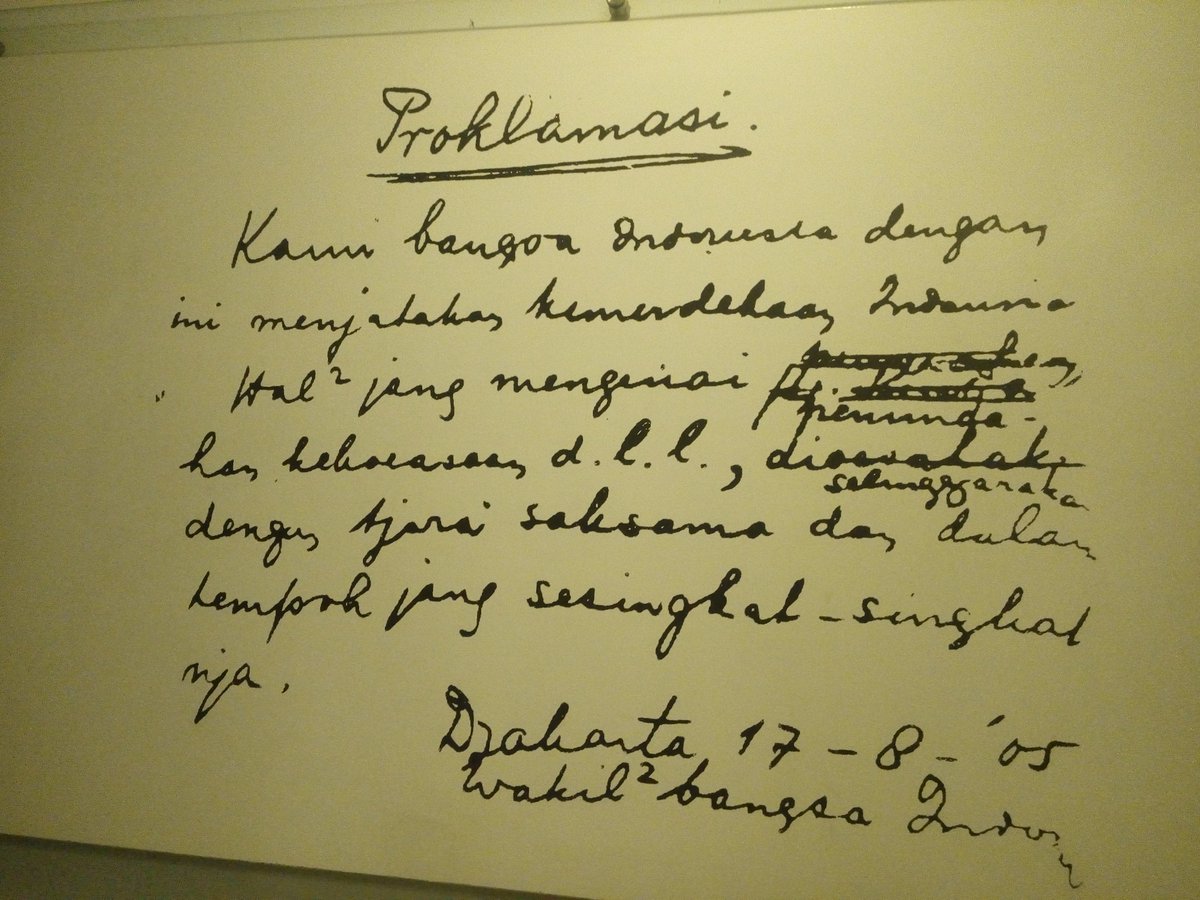 Proklamasi.
Kami bangsa Indonesia dengan
ini menjatakan kemerdekaan Indonesia
Hal² jang mengenai
peminda-
han kekoeasaan d.l.l.,
selenggarakan
dengan tjara saksama dan dalam
tempoh jang sesingkat-singkat
nja.
Djakarta 17-8-'05
Wakil² bangsa Indon